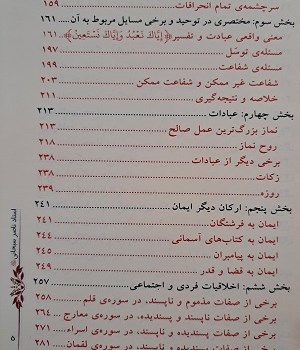 سرچشمه‌ی تمام انحرافات ........ ۱۵۹
بخش سوم: مختصری در توحید و برخی مسایل مربوط به آن ........ ۱۶۱
معنی واقعی عبادت و تفسیر ﴿إِيَّاكَ نَعْبُدُ وَإِيَّاكَ نَسْتَعِينُ﴾ ........ ۱۶۱
مسئله‌ی توسّل ........ ۱۹۷
مسئله‌ی شفاعت ........ ۱۹۹
شفاعت غیر ممکن و شفاعت ممکن ........ ۲۰۳
خلاصه و نتیجه‌گیری ........ ۲۱۱
بخش چهارم: عبادات ........ ۲۱۳
نماز بزرگ‌ترین عمل صالح ........ ۲۱۳
روح نماز ........ ۲۱۸
برخی دیگر از عبادات ........ ۲۳۸
زکات ........ ۲۳۸
روزه ........ ۲۳۹
بخش پنجم: ارکان دیگر ایمان ........ ۲۴۱
ایمان به فرشتگان ........ ۲۴۱
ایمان به کتاب‌های آسمانی ........ ۲۴۴
ایمان به پیامبران ........ ۲۴۵
ایمان به قضا و قدر ........ ۲۴۹
بخش ششم: اخلاقیات فردی و اجتماعی ........ ۲۵۷
برخی از صفات مذموم و ناپسند، در سوره‌ی قلم ........ ۲۵۸
برخی از صفات ناپسند و پسندیده، در سوره‌ی معارج ........ ۲۶۴
برخی از صفات پسندیده و ناپسند، در سوره‌ی اسراء ........ ۲۷۱
برخی از صفات پسندیده و ناپسند، در سوره‌ی لقمان ........ ۲۸۱
استاد ناصر سبحانی
۵